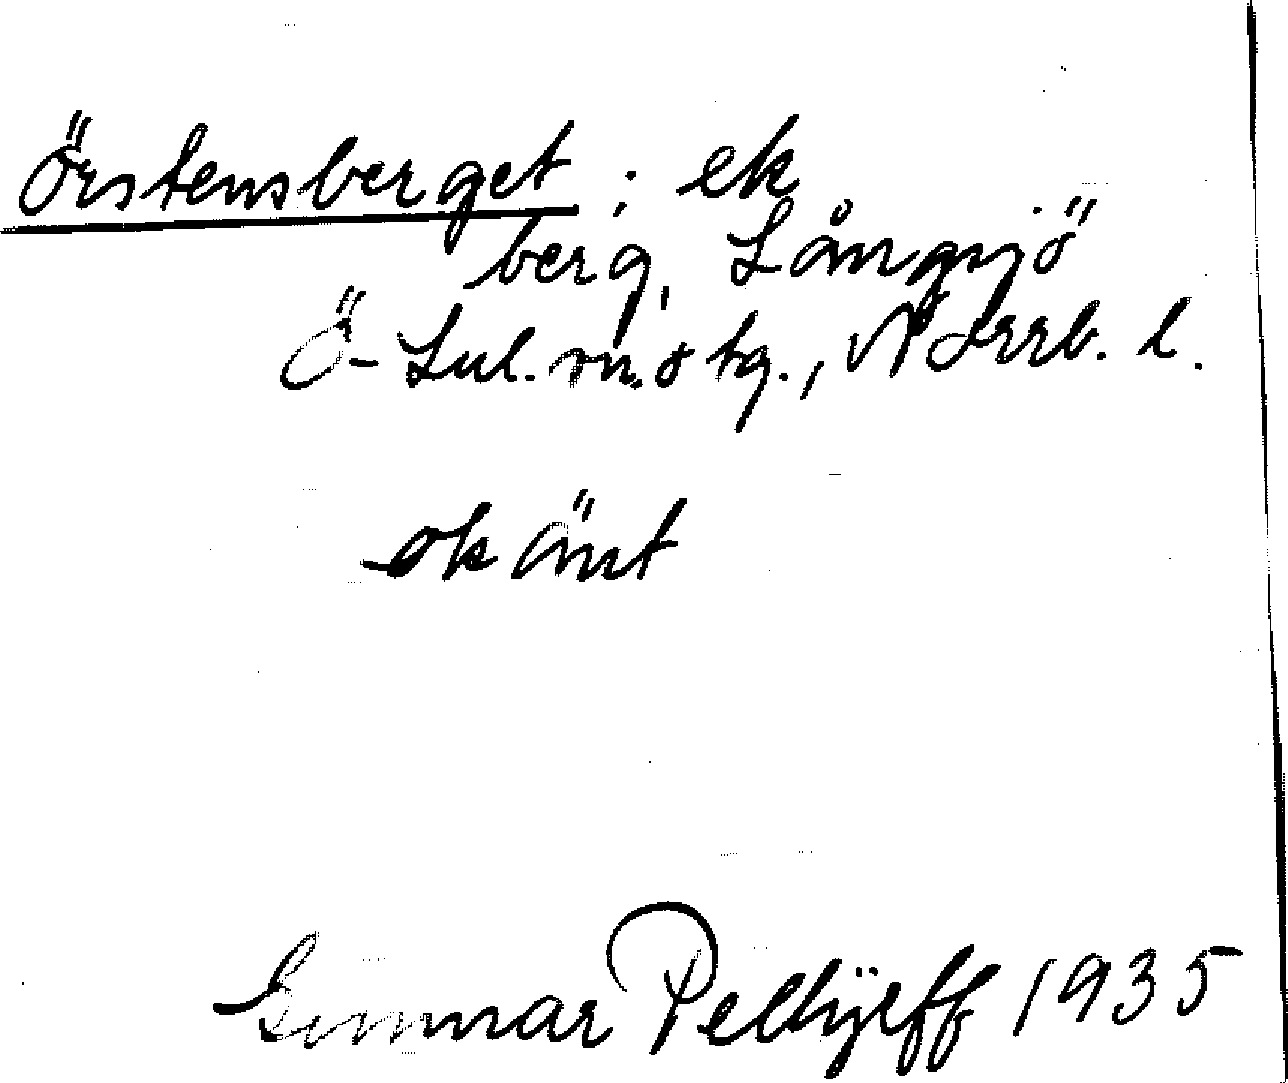 Örstensberget ; ek
berg, Långsjö
Ö-Lul. sn. o tg., Norrb. l.
okänt
Gunnar Pellijeff 1935